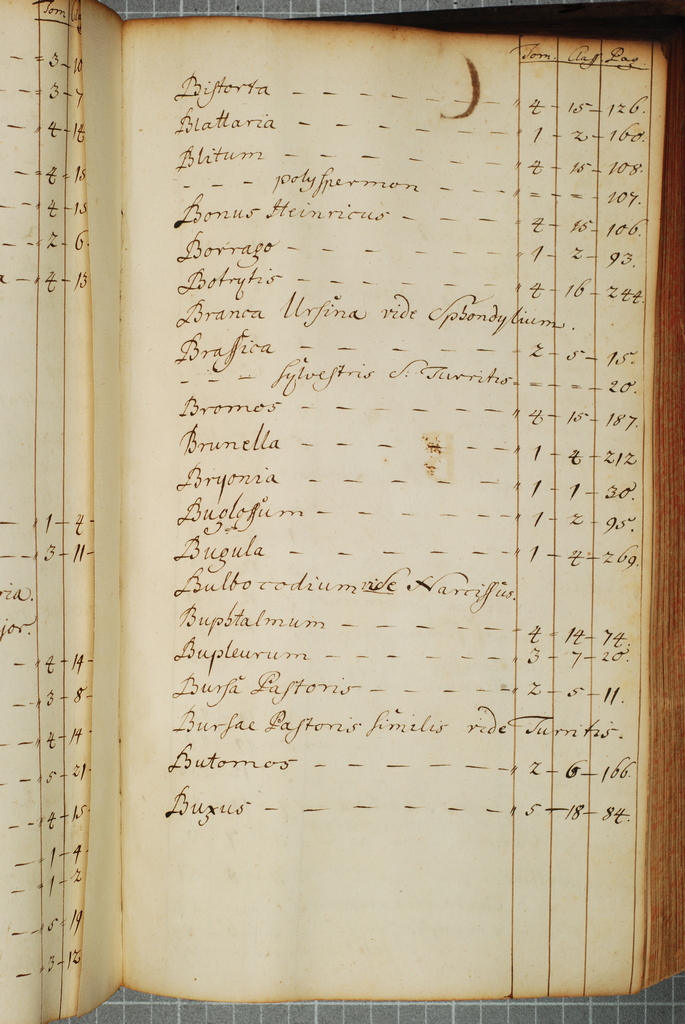 Tom. Clas
3 - 10
3 - 7
4 - 14
4 - 15
4 - 15
2 - 6
4 - 13
1 - 4
3 - 11
ria.
jor.
4 - 14
3 - 8
4 - 14
5 - 21
4 - 15
1 - 4
1 - 2
5 - 19
3 - 12
Tom. Class Pag.
Bistorta - - - - - - " 4 - 15 - 126.
Blattaria - - - - - - " 1 - 2 - 160.
Blitum - - - - - - " 4 - 15 - 108.
- - - polyspermon - - - " = - = - 107.
Bonus Heinricus - - - - " 4 - 15 - 106.
Borrago - - - - - - " 1 - 2 - 93.
Botrytis - - - - - - " 4 - 16 - 244.
Branca Ursina vide Sphondylium.
Brassica - - - - - - " 2 - 5 - 15.
- - - sylvestris S. Turritis - = - = - 20.
Bromos - - - - - - " 4 - 15 - 187.
Brunella - - - - - - " 1 - 4 - 212
Bryonia - - - - - - " 1 - 1 - 30.
Buglossum - - - - - " 1 - 2 - 95.
Bugula - - - - - - " 1 - 4 - 269.
Bulbocodium vide Narcissus.
Buphtalmum - - - - - " 4 - 14 - 74.
Bupleurum - - - - - " 3 - 7 - 20.
Bursa Pastoris - - - - " 2 - 5 - 11.
Bursae Pastoris similis vide Turritis.
Butomos - - - - - - " 2 - 6 - 166.
Buxus - - - - - - - " 5 - 18 - 84.